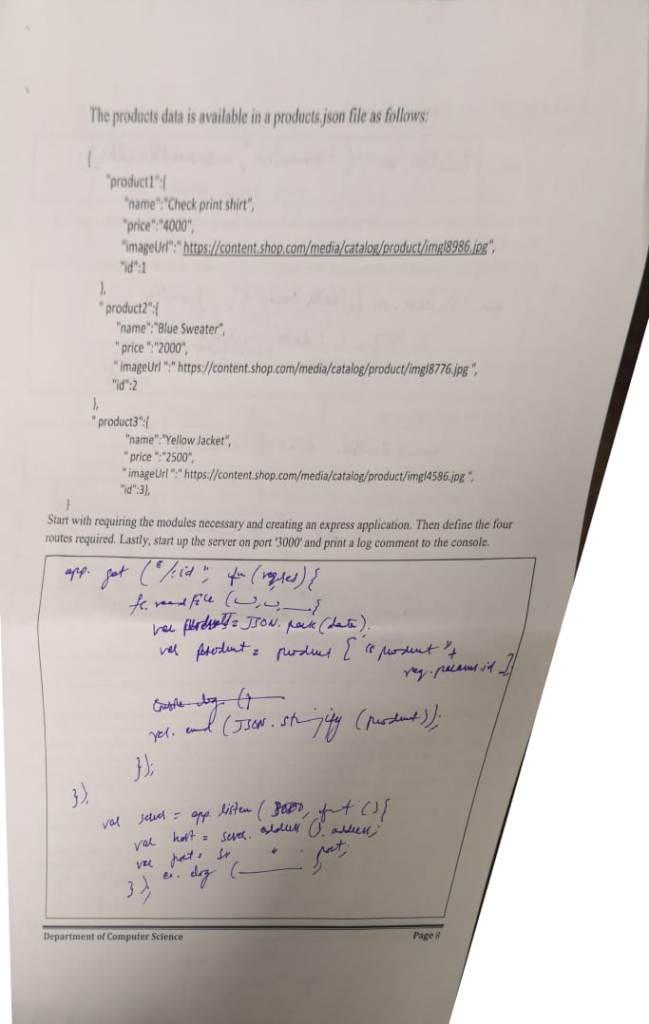 The products data is available in a products.json file as follows:
{
"product1":{
"name":"Check print shirt",
"price":"4000",
"imageUrl":" https://content.shop.com/media/catalog/product/imgl8986.jpg",
"id":1
},
" product2":{
"name":"Blue Sweater",
" price ":"2000",
" imageUrl ":" https://content.shop.com/media/catalog/product/imgl8776.jpg ",
"id":2
},
" product3":{
"name":"Yellow Jacket",
" price ":"2500",
" imageUrl ":" https://content.shop.com/media/catalog/product/imgl4586.jpg ",
"id":3},
}
Start with requiring the modules necessary and creating an express application. Then define the four
routes required. Lastly, start up the server on port '3000' and print a log comment to the console.
app. get ("/:id", fn (req,res) {
fs. read File ( , , {
var = JSON. parse (data);
var product = product [ "product" +
req.params.id ]
res. end (JSON. stringify (product));
});
});
var server = app. listen ( 3000, () {
var host = server. address (). address;
var port = port;
log (
});
Department of Computer Science
Page 8